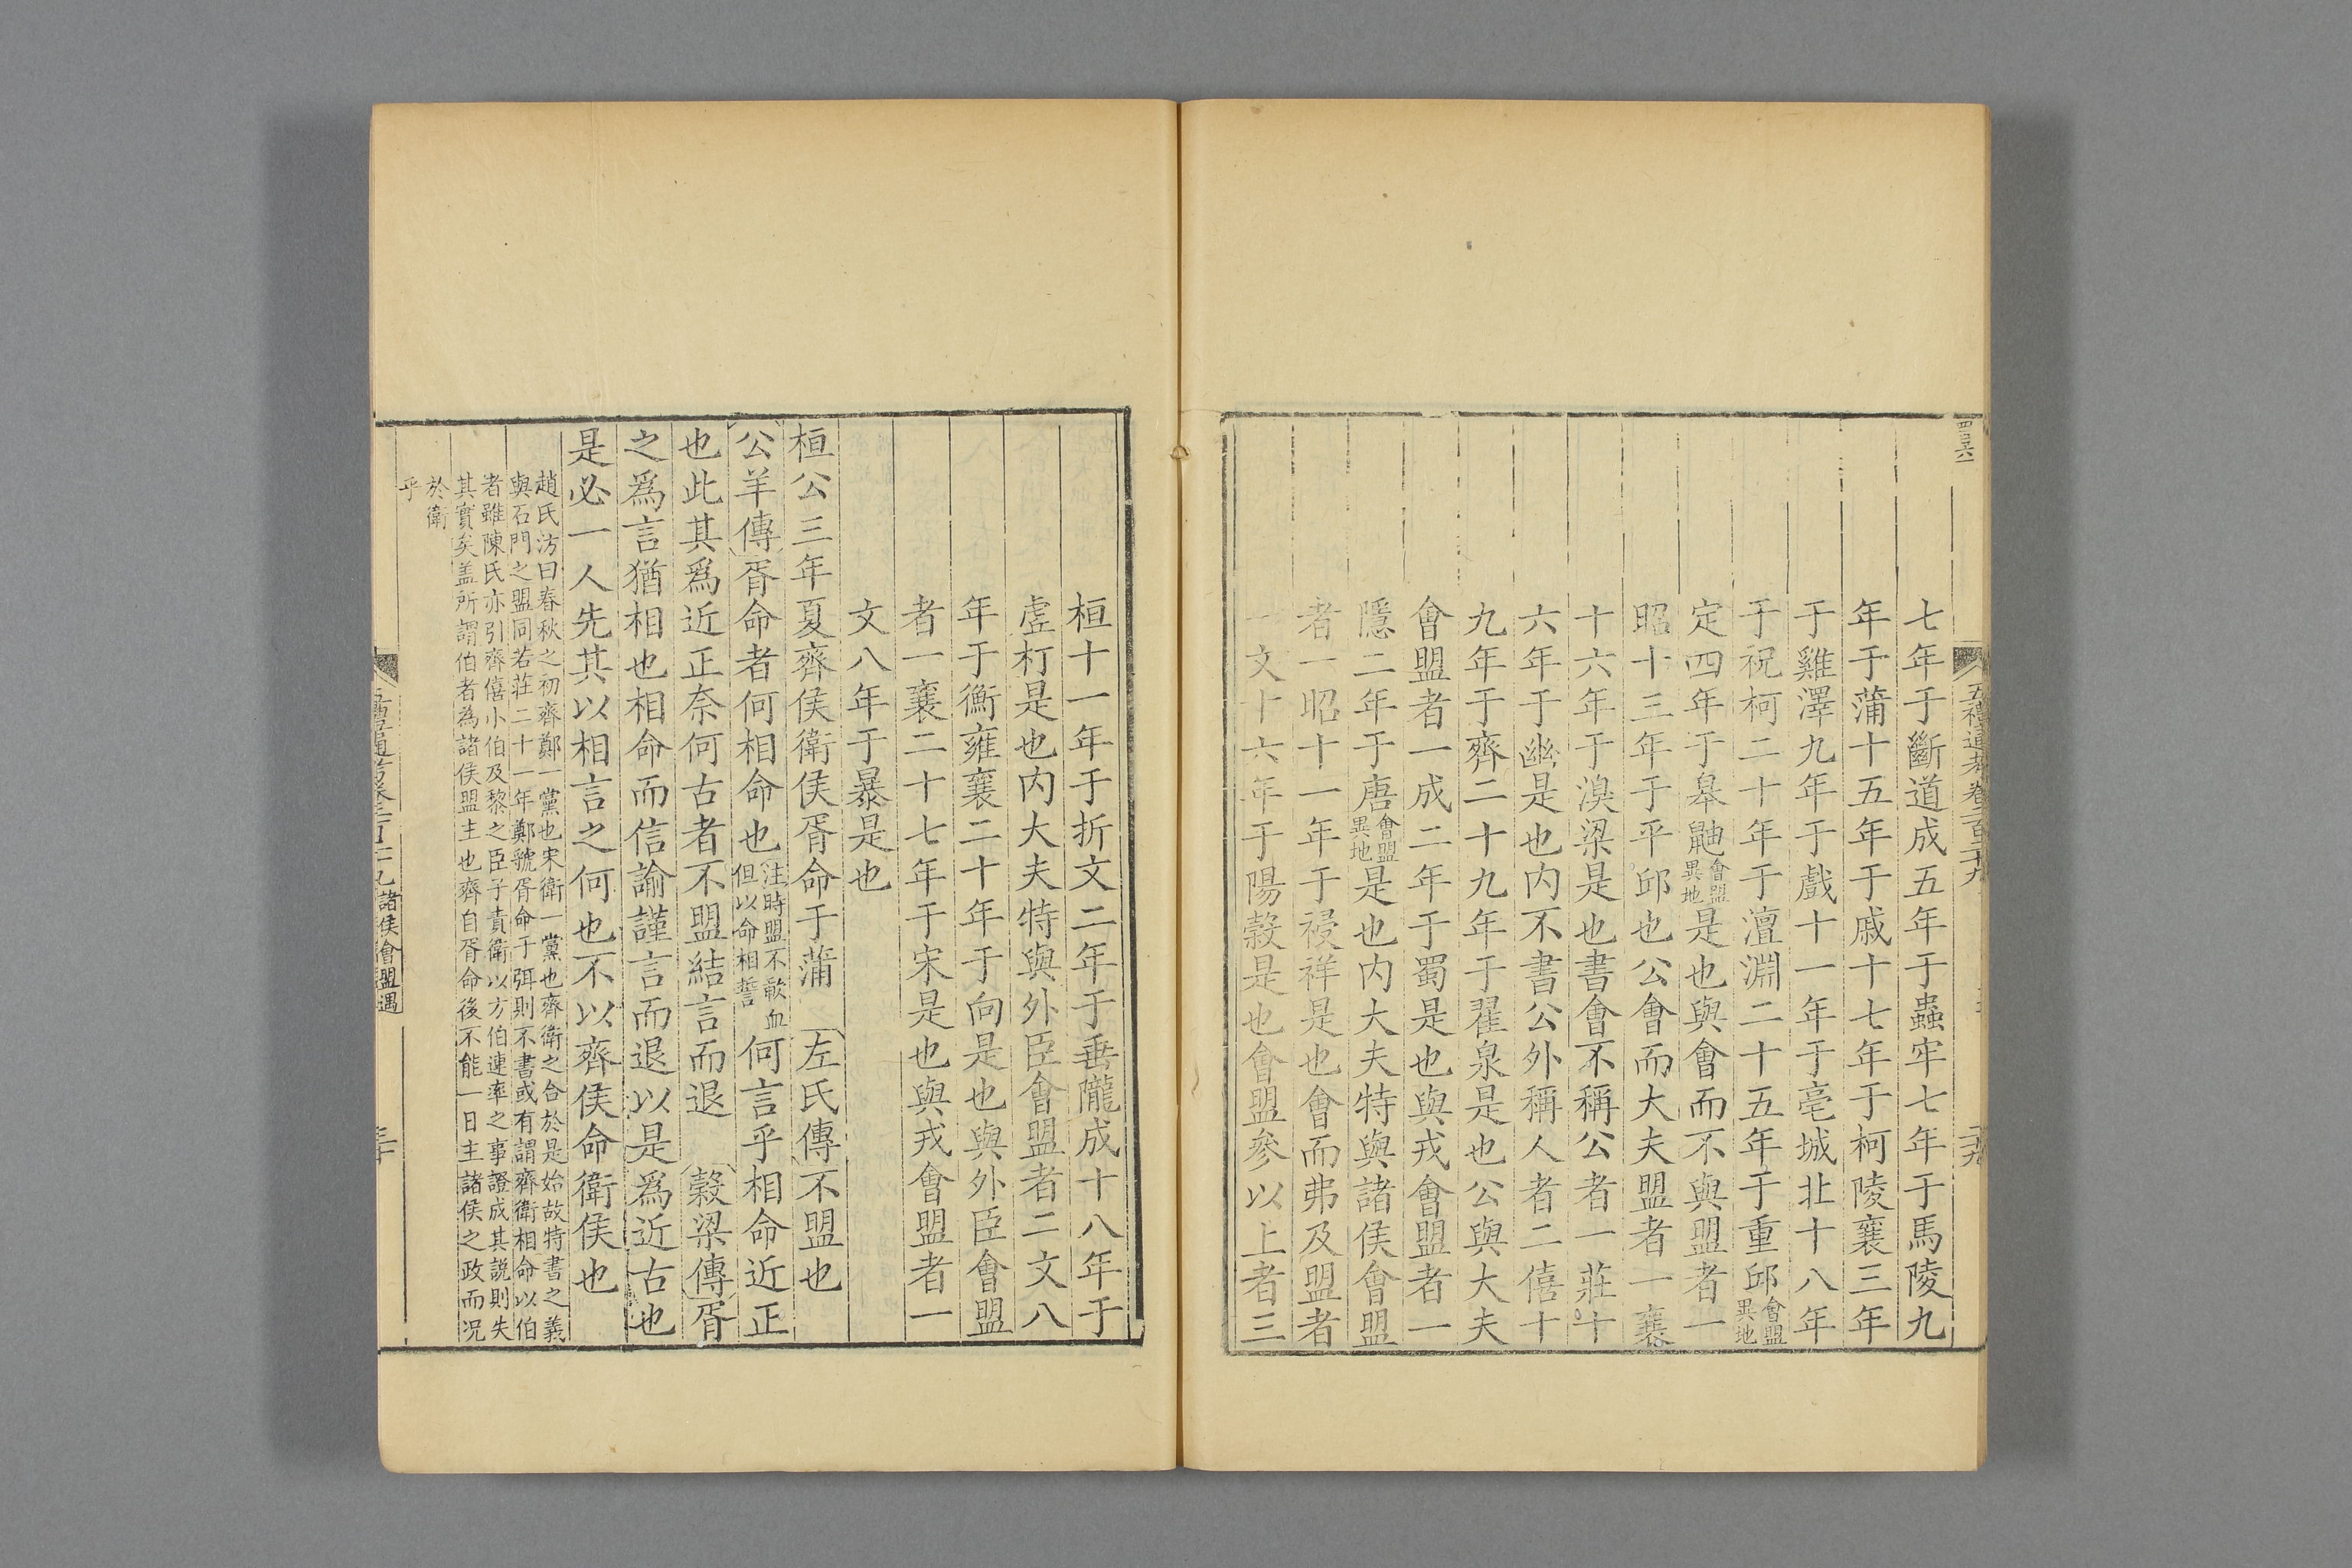 五禮通考卷二百二十九
七年于斷道成五年于蟲牢七年于馬陵九
年于蒲十五年于戚十七年于柯陵襄三年
于雞澤九年于戲十一年于亳城北十八年
于祝柯二十年于澶淵二十五年于重邱會盟異地
定四年于皋鼬會盟異地是也與會而不與盟者一
昭十三年于平邱也公會而大夫盟者一襄
十六年于溴梁是也書會不稱公者一莊十
六年于幽是也内不書公外稱人者二僖十
九年于齊二十九年于翟泉是也公與大夫
會盟者一成二年于蜀是也與戎會盟者一
隱二年于唐會盟異地是也内大夫特與諸侯會盟
者一昭十一年于祲祥是也會而弗及盟者
一文十六年于陽穀是也會盟參以上者三
桓十一年于折文二年于垂隴成十八年于
虛朾是也内大夫特與外臣會盟者二文八
年于衡雍襄二十年于向是也與外臣會盟
者一襄二十七年于宋是也與戎會盟者一
文八年于暴是也
桓公三年夏齊侯衛侯胥命于蒲　左氏傳不盟也
公羊傳胥命者何相命也注時盟不歃血但以命相誓何言乎相命近正
也此其爲近正奈何古者不盟結言而退　穀梁傳胥
之爲言猶相也相命而信諭謹言而退以是爲近古也
是必一人先其以相言之何也不以齊侯命衛侯也
趙氏汸曰春秋之初齊鄭一黨也宋衛一黨也齊衛之合於是始故特書之義
與石門之盟同若莊二十一年鄭虢胥命于弭則不書或有謂齊衛相命以伯
者雖陳氏亦引齊僖小伯及黎之臣子責衛以方伯連率之事證成其說則失
其實矣盖所謂伯者為諸侯盟主也齊自胥命後不能一日主諸侯之政而况
於衛
乎
諸侯會盟遇